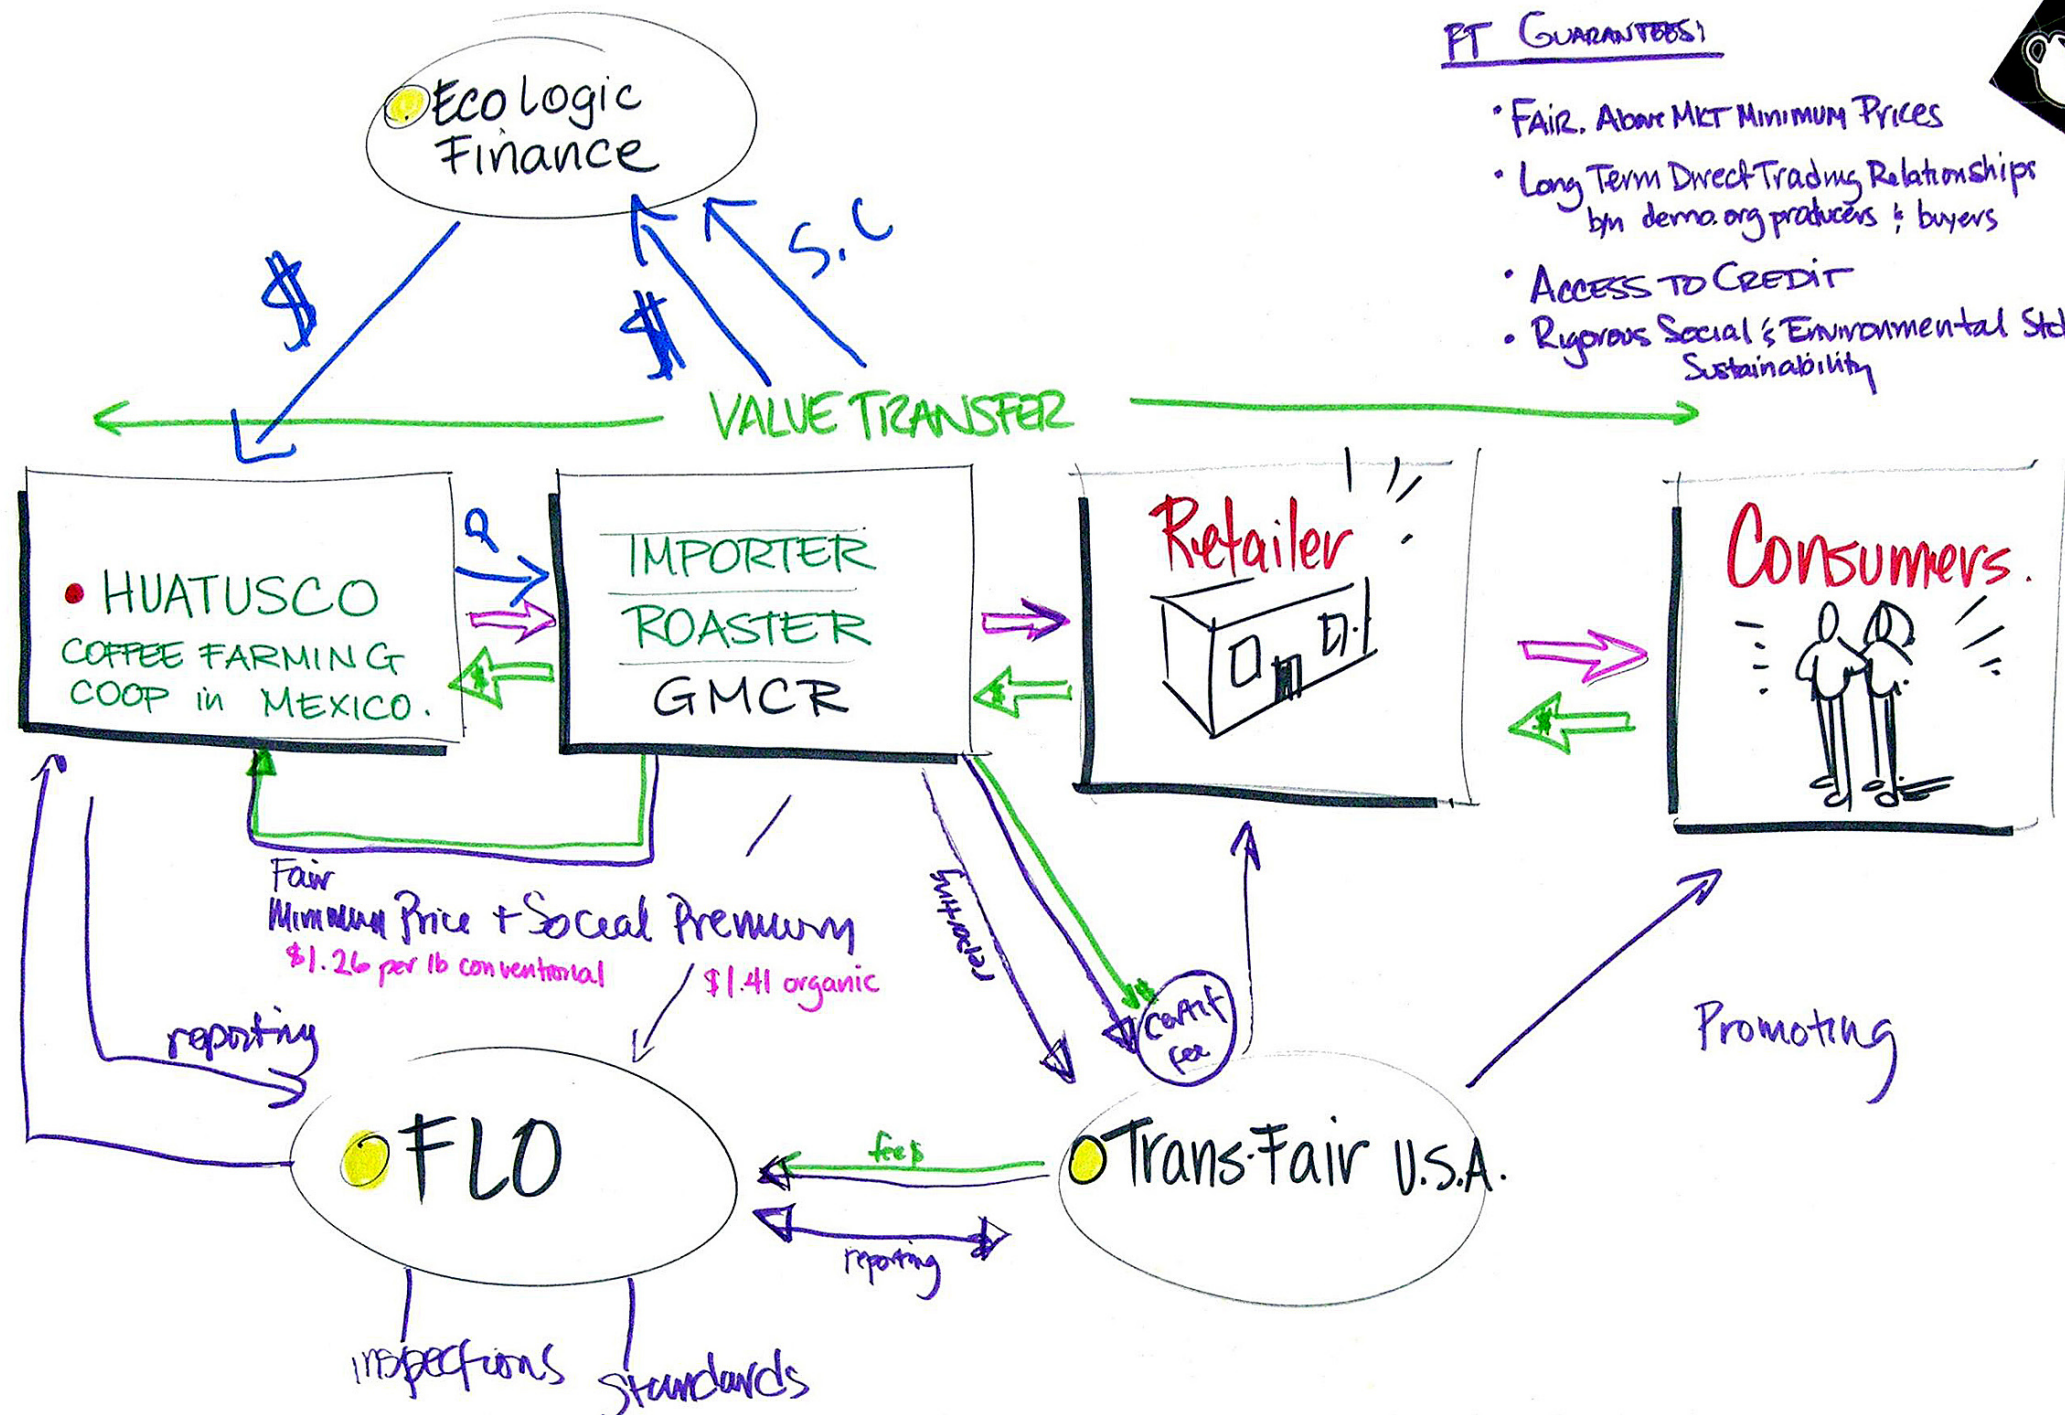 Ecologic
Finance
FT GUARANTEES:
• FAIR. Above MKT Minimum Prices
• Long Term Direct Trading Relationships
b/n demo.org producers & buyers
• ACCESS TO CREDIT
• Rigorous Social & Environmental Std
Sustainability
$
$
S.C
VALUE TRANSFER
• HUATUSCO
COFFEE FARMING
COOP in MEXICO.
Q
$
IMPORTER
ROASTER
GMCR
$
Retailer
$
Consumers.
Fair
Minimum Price + Social Premium
$1.26 per lb conventional
$1.41 organic
reporting
reporting
$
certif
fee
Promoting
FLO
fees
reporting
Trans-Fair U.S.A.
inspections
standards